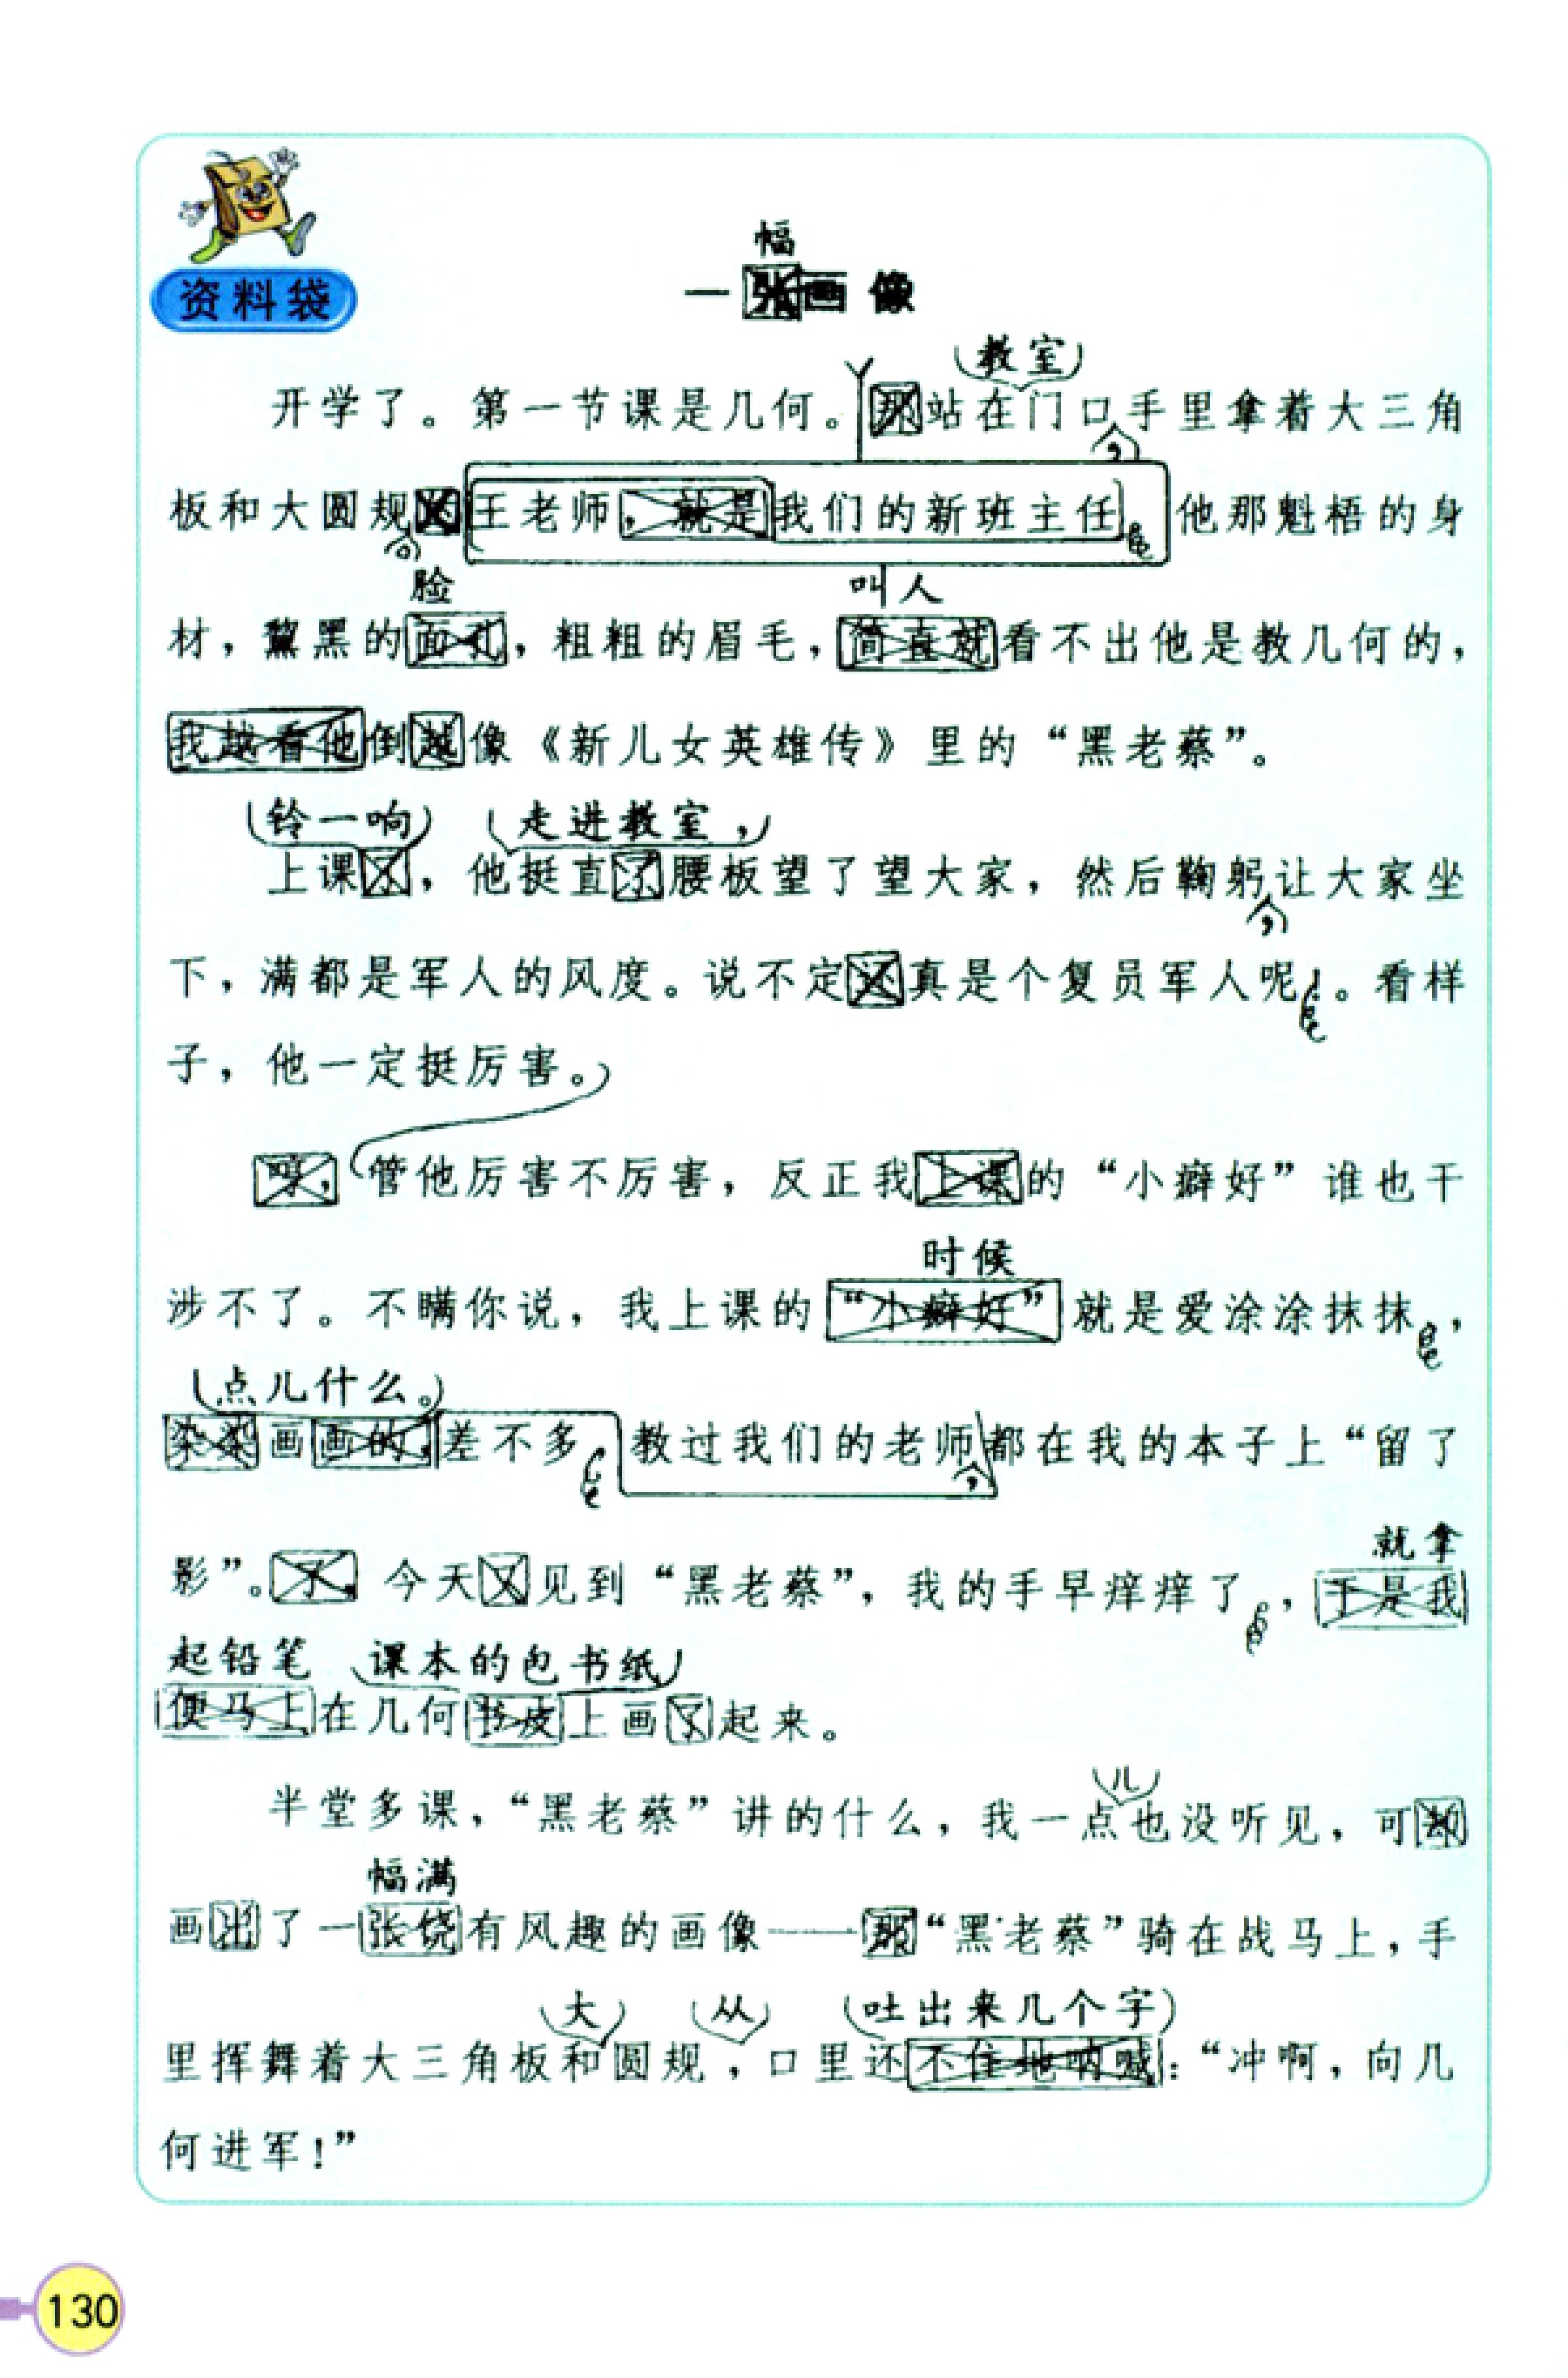 资料袋
幅
一张画像
教室
开学了。第一节课是几何。那站在门口,手里拿着大三角
板和大圆规的。王老师,就是我们的新班主任。他那魁梧的身
脸 叫人
材,黧黑的面孔,粗粗的眉毛,简直就看不出他是教几何的,
我越看他倒越像《新儿女英雄传》里的“黑老蔡”。
铃一响 走进教室,
上课了,他挺直了腰板望了望大家,然后鞠躬,让大家坐
下,满都是军人的风度。说不定还真是个复员军人呢!。看样
子,他一定挺厉害。
哼,管他厉害不厉害,反正我上课的“小癖好”谁也干
时候
涉不了。不瞒你说,我上课的“小癖好”就是爱涂涂抹抹,
点儿什么。
染染画画的,差不多教过我们的老师,都在我的本子上“留了
就拿
影”。今天又见到“黑老蔡”,我的手早痒痒了,于是我
起铅笔 课本的包书纸
便马上在几何书皮上画了起来。
儿
半堂多课,“黑老蔡”讲的什么,我一点也没听见,可却
幅满
画出了一张饶有风趣的画像——那“黑老蔡”骑在战马上,手
大 从 吐出来几个字
里挥舞着大三角板和圆规,口里还不住地呐喊:“冲啊,向几
何进军!”
130